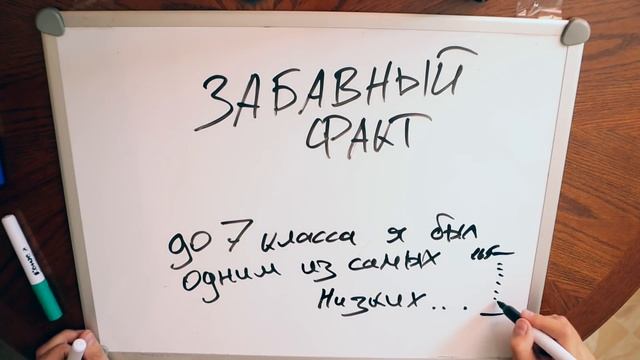 ЗАБАВНЫЙ
ФАКТ
до 7 класса я был
одним из самых
низких....